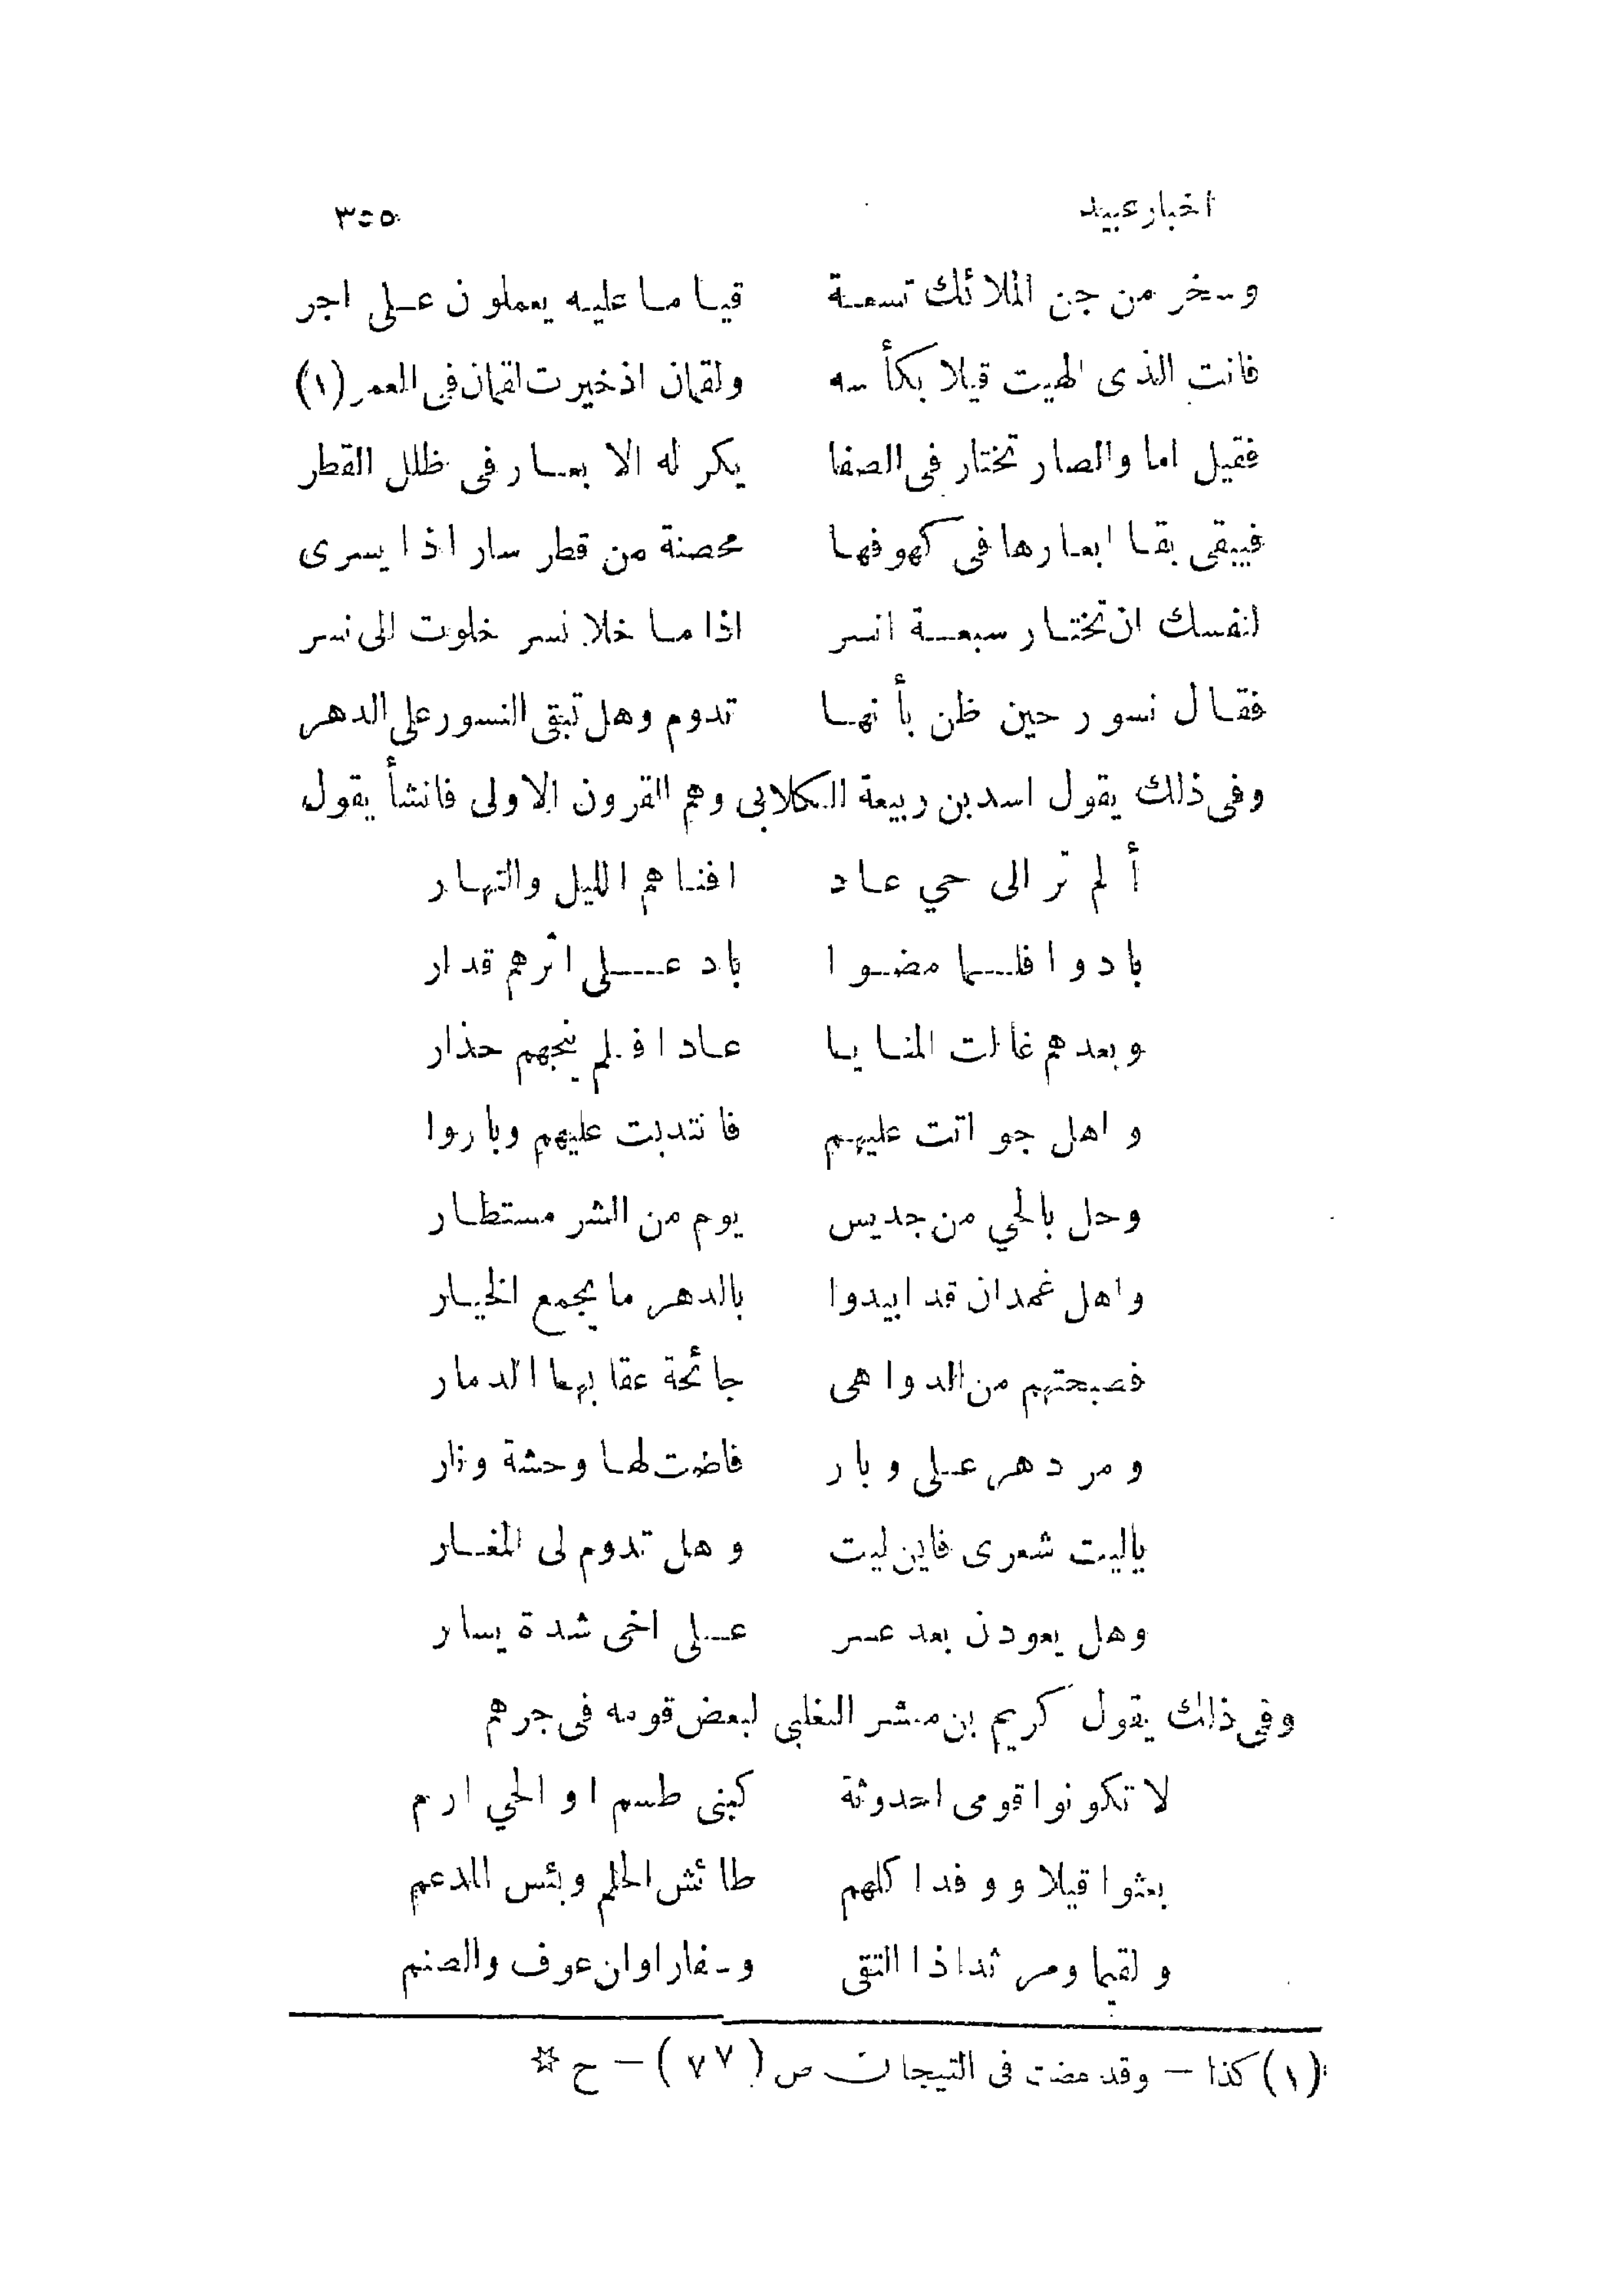 اخبار عبيد ٣٥٥
وسخر من جن الملائك تسعة قياما عليه يعملون على اجر
فانت الذى الهيت قيلا بكأسه ولقمان اذ خيرت لقمان فى العمر (١)
فقيل اما والصار تختار فى الصفا يكر له الا بعار فى ظلل القطر
فيبقى بقا ابعارها فى كهوفها محصنة من قطر سار اذا يسرى
لنفسك ان تختار سبعة انسر اذا ما خلا نسر خلوت الى نسر
فقال نسور حين ظن بأنها تدوم وهل تبقى النسور على الدهر
وفى ذلك يقول اسد بن ربيعة الكلابى وهم القرون الاولى فانشأ يقول
ألم تر الى حي عاد افناهم الليل والنهار
بادوا فلما مضوا باد على اثرهم قدار
وبعدهم غالت المنايا عادا فلم ينجهم حذار
واهل جو اتت عليهم فانتدبت عليهم وباروا
وحل بالحي من جديس يوم من الشر مستطار
واهل غمدان قد ابيدوا بالدهر ما يجمع الخيار
فصبحتهم من الدواهى جائحة عقابها الدمار
ومر دهر على وبار فاضت لها وحشة ونار
ياليت شعرى فاين ليت وهل تدوم لى المغار
وهل يعودن بعد عسر على اخى شدة يسار
وفى ذلك يقول كريم بن مشر التغلبى لبعض قومه فى جرهم
لا تكونوا قومى احدوثة كبنى طسم او الحي ارم
بعثوا قيلا ووفدا كلهم طائش الحلم وبئس المدعم
ولقيما ومرثدا ذا التقى وسفار اوان عوف والصنم
(١) كذا – وقد مضت فى التيجان ص (٧٧) – ح ☆